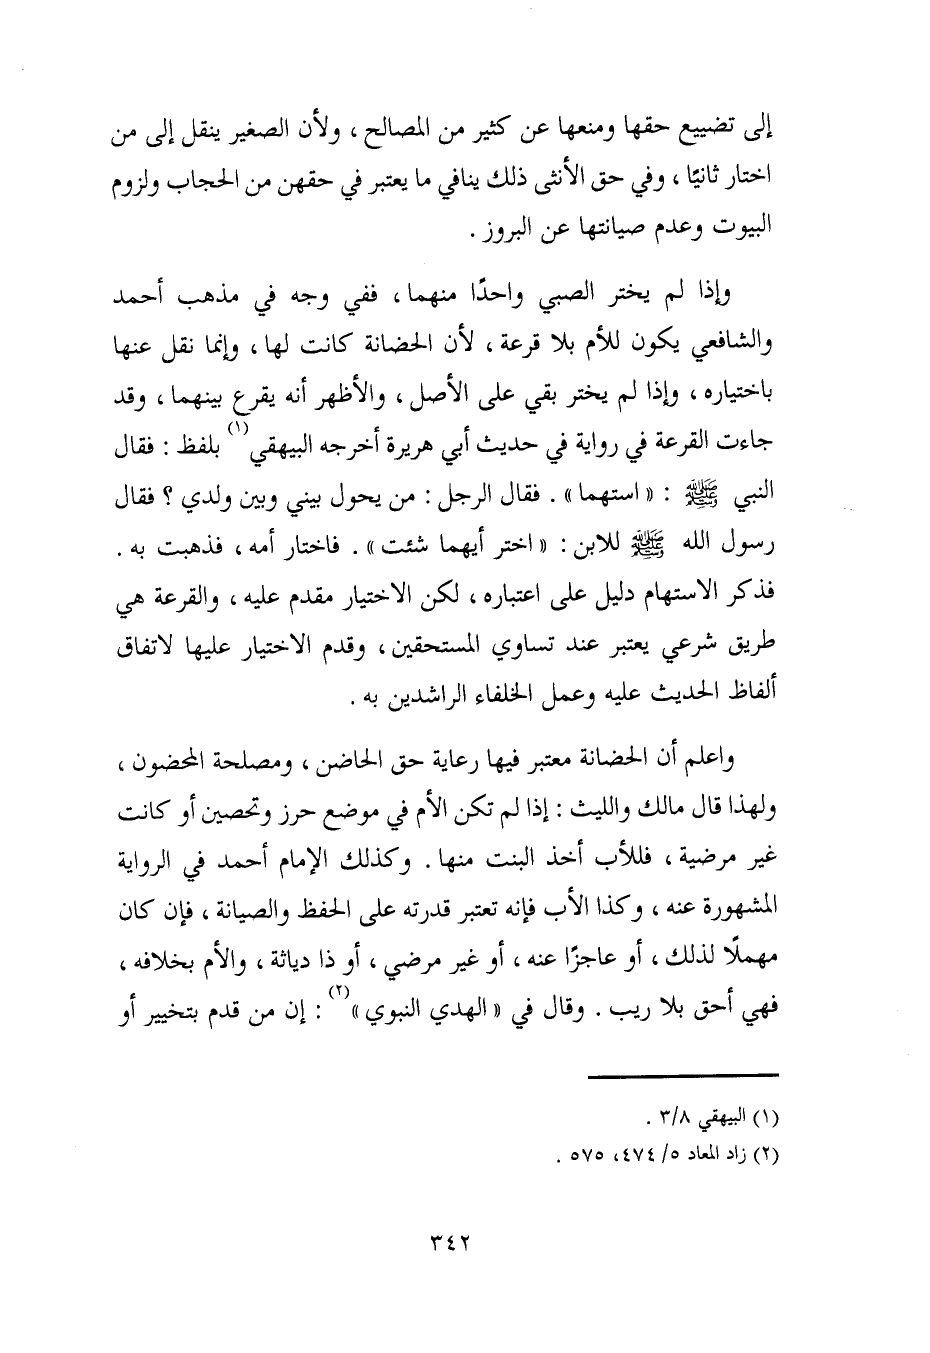 إلى تضييع حقها ومنعها عن كثير من المصالح ، ولأن الصغير ينقل إلى من
اختار ثانيًا ، وفي حق الأنثى ذلك ينافي ما يعتبر في حقهن من الحجاب ولزوم
البيوت وعدم صيانتها عن البروز .
وإذا لم يختر الصبي واحدًا منهما ، ففي وجه في مذهب أحمد
والشافعي يكون للأم بلا قرعة ، لأن الحضانة كانت لها ، وإنما نقل عنها
باختياره ، وإذا لم يختر بقي على الأصل ، والأظهر أنه يقرع بينهما ، وقد
جاءت القرعة في رواية في حديث أبي هريرة أخرجه البيهقي(١) بلفظ : فقال
النبي ﷺ : « استهما » . فقال الرجل : من يحول بيني وبين ولدي ؟ فقال
رسول الله ﷺ للابن : « اختر أيهما شئت » . فاختار أمه ، فذهبت به .
فذكر الاستهام دليل على اعتباره ، لكن الاختيار مقدم عليه ، والقرعة هي
طريق شرعي يعتبر عند تساوي المستحقين ، وقدم الاختيار عليها لاتفاق
ألفاظ الحديث عليه وعمل الخلفاء الراشدين به .
واعلم أن الحضانة معتبر فيها رعاية حق الحاضن ، ومصلحة المحضون ،
ولهذا قال مالك والليث : إذا لم تكن الأم في موضع حرز وتحصين أو كانت
غير مرضية ، فللأب أخذ البنت منها . وكذلك الإمام أحمد في الرواية
المشهورة عنه ، وكذا الأب فإنه تعتبر قدرته على الحفظ والصيانة ، فإن كان
مهملًا لذلك ، أو عاجزًا عنه ، أو غير مرضي ، أو ذا دياثة ، والأم بخلافه ،
فهي أحق بلا ريب . وقال في « الهدي النبوي »(٢) : إن من قدم بتخيير أو
(١) البيهقي ٣/٨ .
(٢) زاد المعاد ٥/ ٤٧٤، ٥٧٥ .
٣٤٢